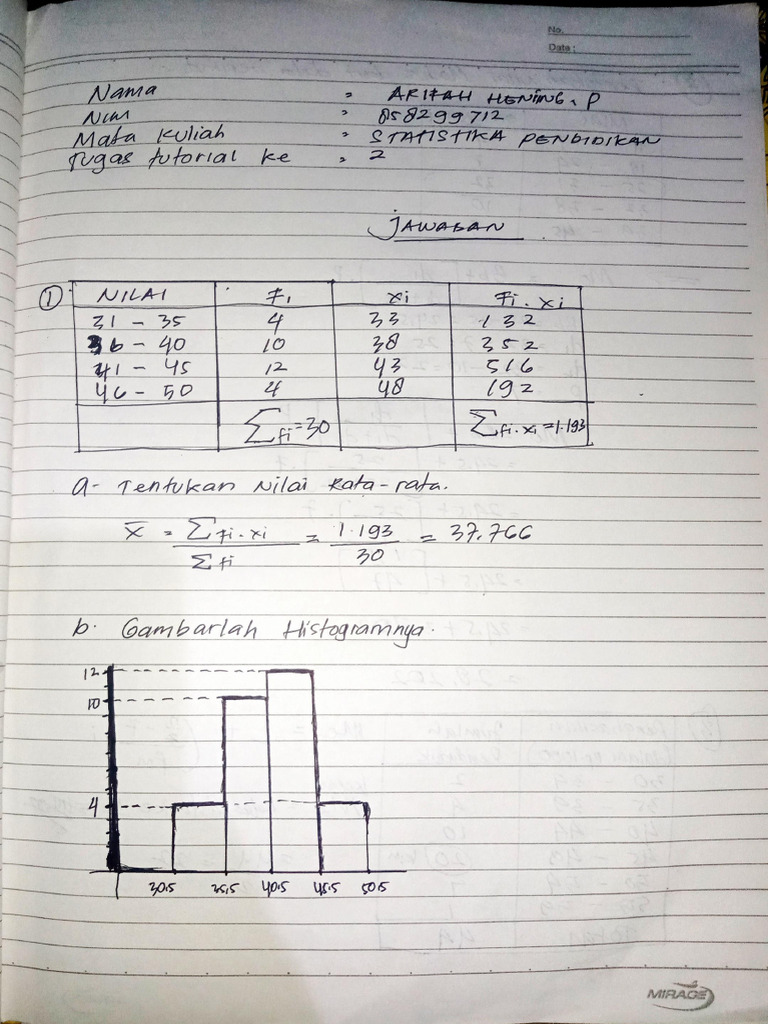 No.
Date :
Nama : ARIFAH HENING. P
Nim : 858299712
Mata Kuliah : STATISTIKA PENDIDIKAN
Tugas tutorial ke : 2
JAWABAN
① NILAI Fi xi Fi . xi
31 - 35 4 33 132
36 - 40 10 38 352
41 - 45 12 43 516
46 - 50 4 48 192
∑fi = 30 ∑fi.xi = 1.193
a- Tentukan Nilai Rata-rata.
x̄ = ∑fi.xi / ∑fi = 1.193 / 30 = 37.766
b. Gambarlah Histogramnya.
12
10
4
30.5 35.5 40.5 45.5 50.5
MIRAGE